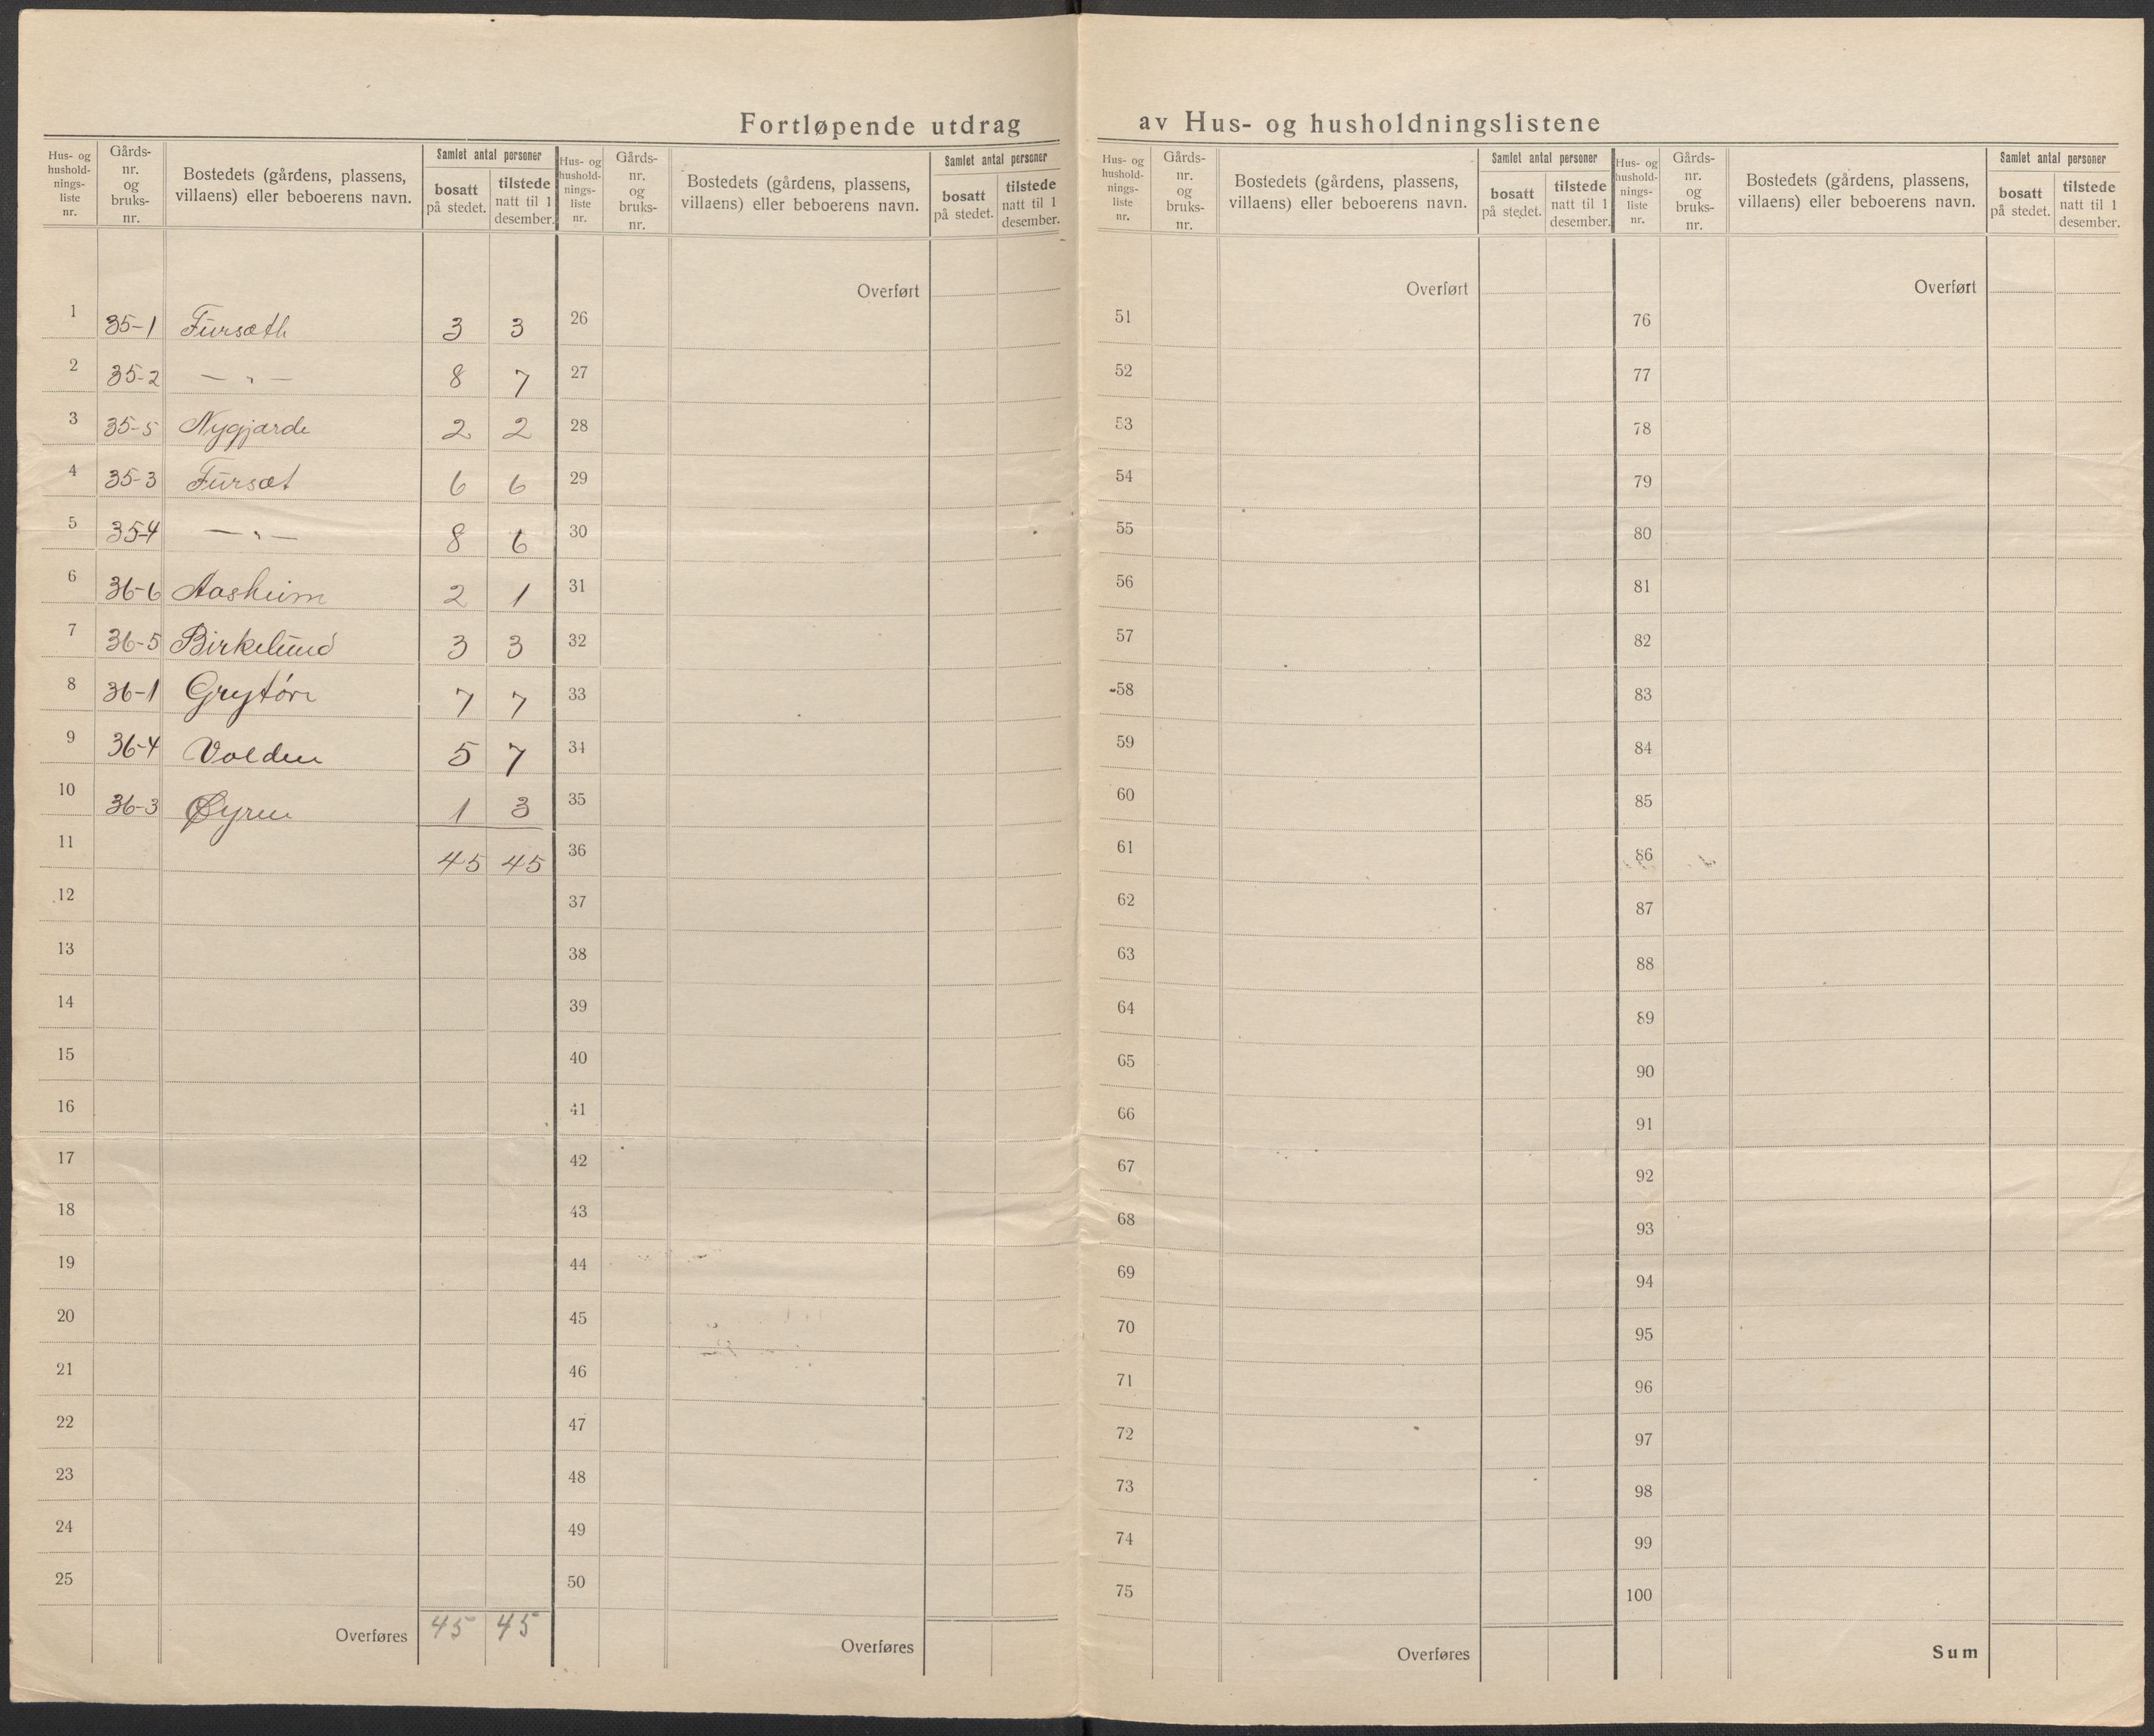 Fortløpende utdrag av Hus- og husholdningslistene
Hus- og hushold- nings- liste nr. | Gårds- nr. og bruks- nr. | Bostedets (gårdens, plassens, villaens) eller beboerens navn. | Samlet antal personer | bosatt på stedet. | tilstede natt til 1 desember.
1 35-1 Fursæth 3 3
2 35-2 — „ — 8 7
3 35-5 Nygjærde 2 2
4 35-3 Fursæt 6 6
5 35-4 — „ — 8 6
6 36-6 Aasheim 2 1
7 36-5 Birkelund 3 3
8 36-1 Grytöre 7 7
9 36-4 Volden 5 7
10 36-3 Øyren 1 3
11 45 45
12
13
14
15
16
17
18
19
20
21
22
23
24
25
Overføres 45 45
Hus- og hushold- nings- liste nr. | Gårds- nr. og bruks- nr. | Bostedets (gårdens, plassens, villaens) eller beboerens navn. | Samlet antal personer | bosatt på stedet. | tilstede natt til 1 desember.
Overført
26
27
28
29
30
31
32
33
34
35
36
37
38
39
40
41
42
43
44
45
46
47
48
49
50
Overføres
Hus- og hushold- nings- liste nr. | Gårds- nr. og bruks- nr. | Bostedets (gårdens, plassens, villaens) eller beboerens navn. | Samlet antal personer | bosatt på stedet. | tilstede natt til 1 desember.
Overført
51
52
53
54
55
56
57
58
59
60
61
62
63
64
65
66
67
68
69
70
71
72
73
74
75
Overføres
Hus- og hushold- nings- liste nr. | Gårds- nr. og bruks- nr. | Bostedets (gårdens, plassens, villaens) eller beboerens navn. | Samlet antal personer | bosatt på stedet. | tilstede natt til 1 desember.
Overført
76
77
78
79
80
81
82
83
84
85
86
87
88
89
90
91
92
93
94
95
96
97
98
99
100
Sum